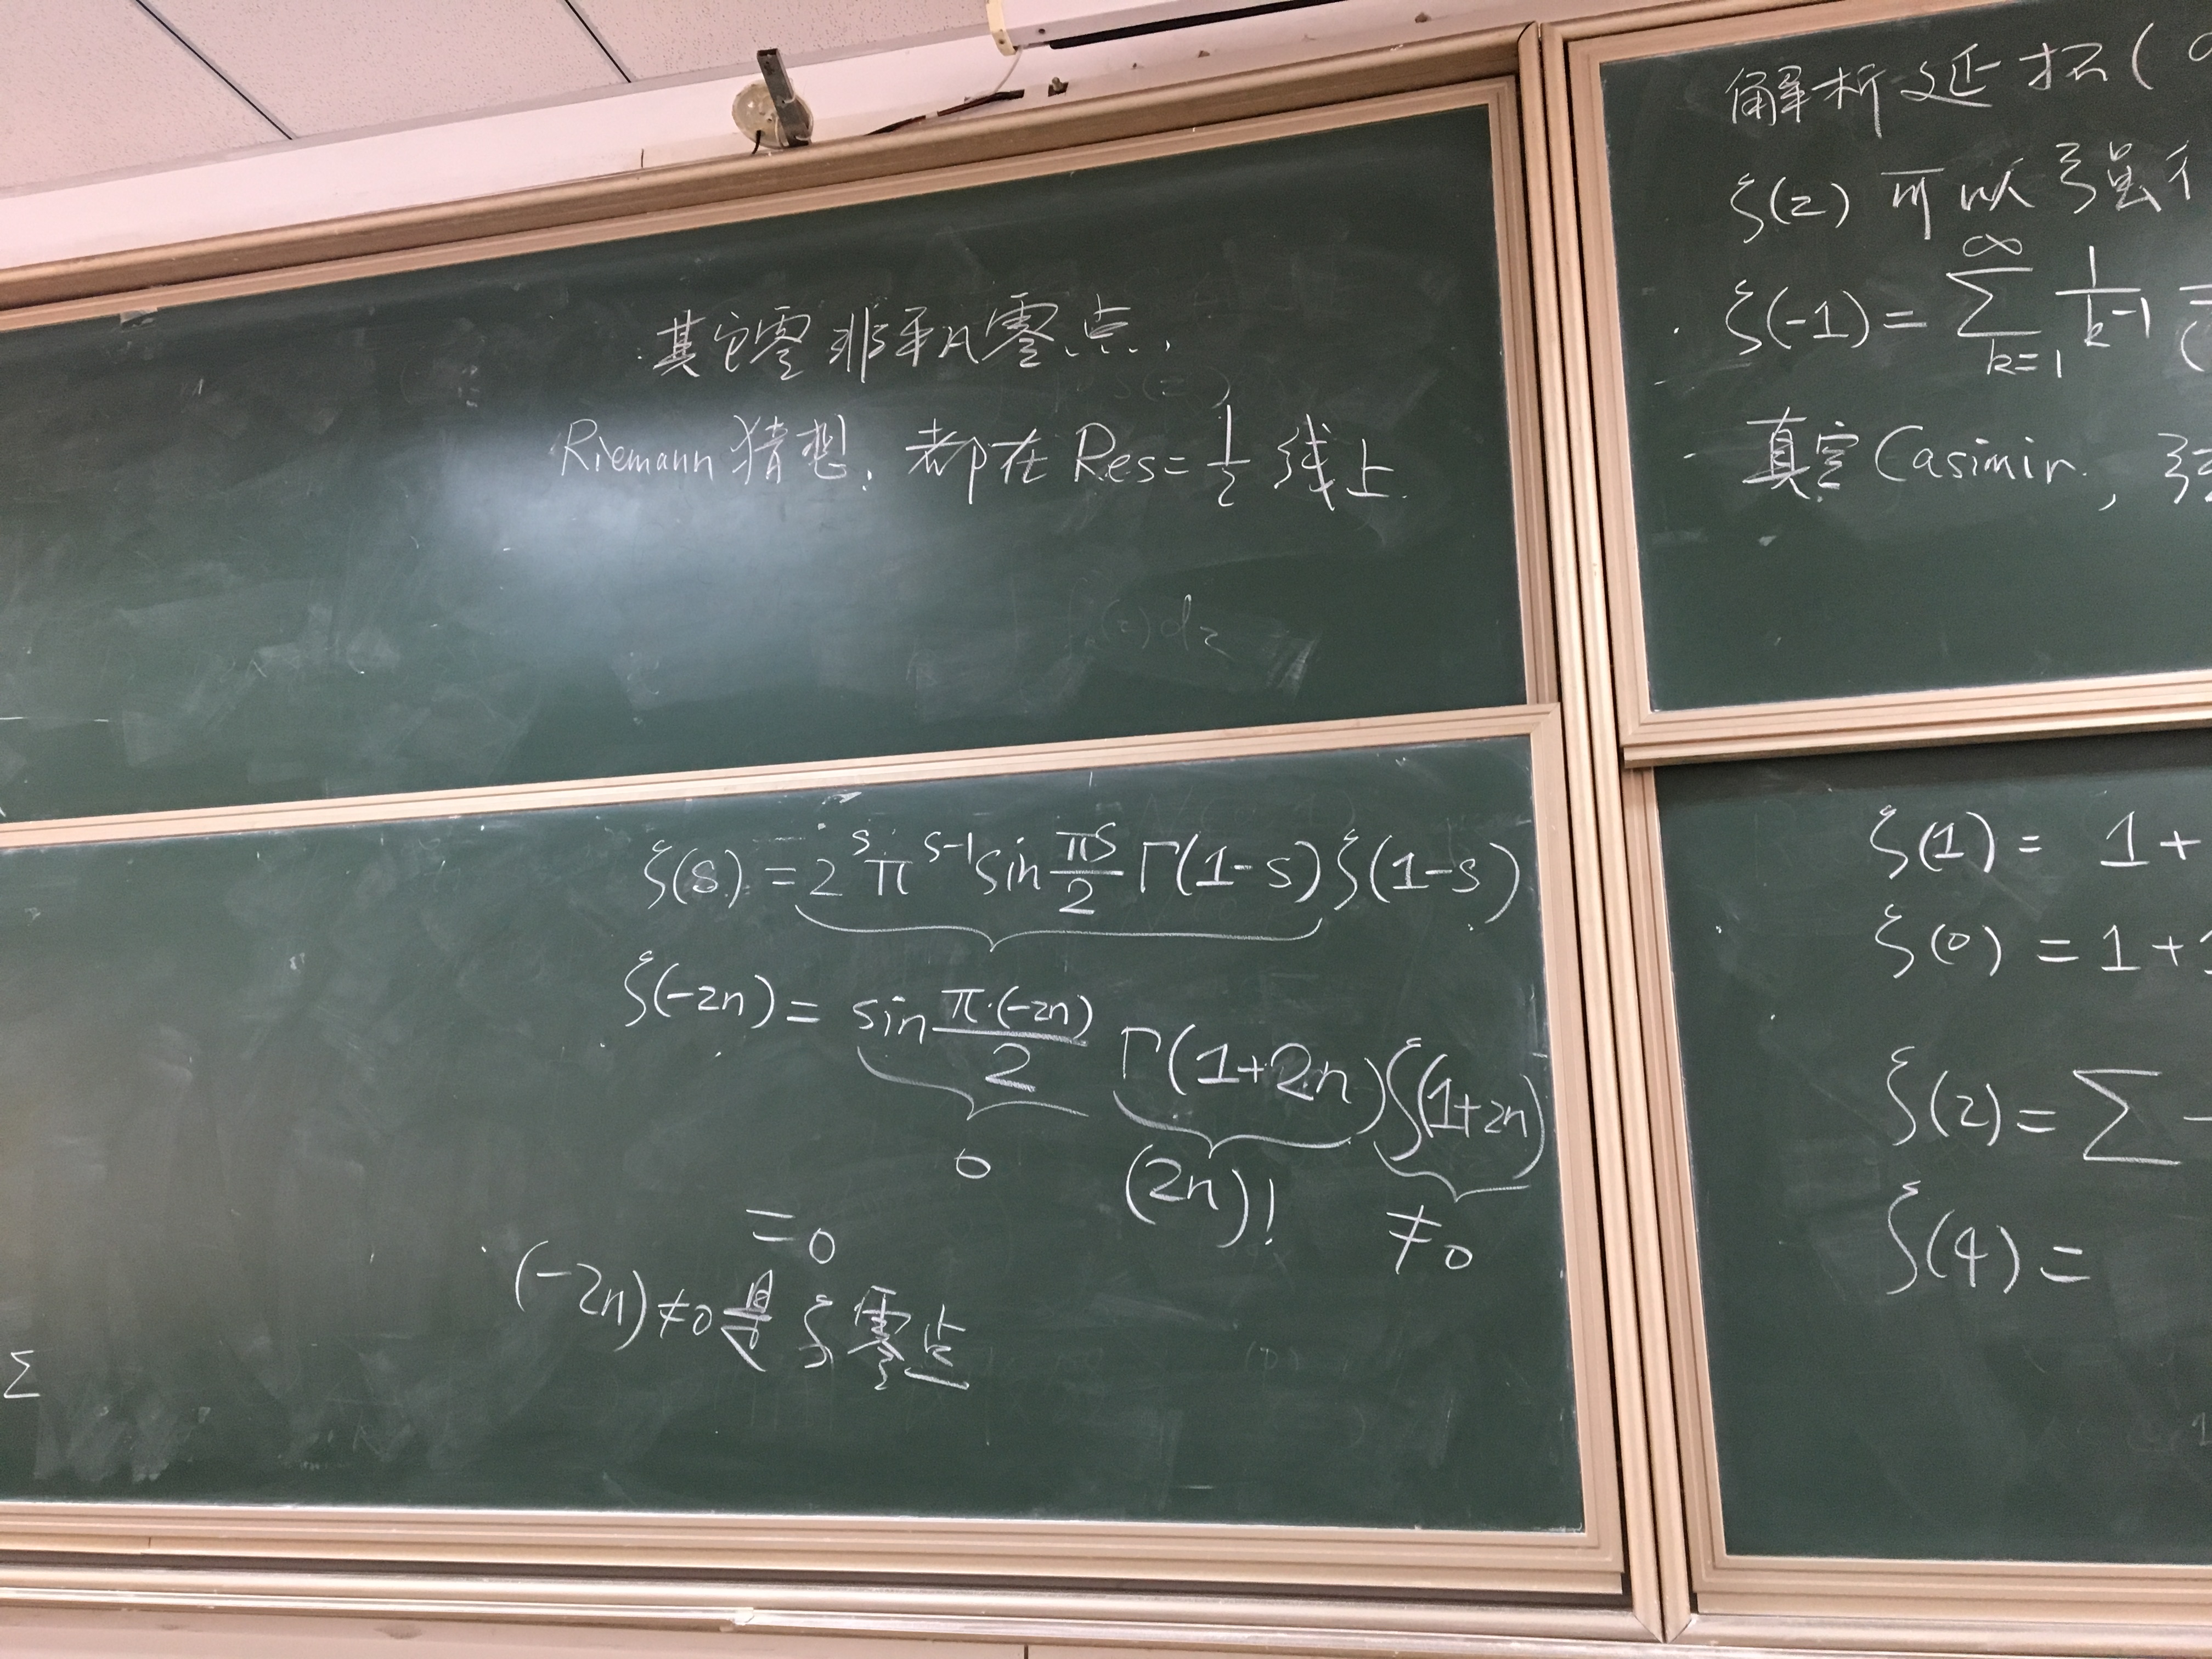 其它零非平凡零点.
Riemann猜想, 都在Res=1/2线上.
ζ(s) = 2^s π^{s-1} sin πs/2 Γ(1-s) ζ(1-s)
ζ(-2n) = sin π·(-2n)/2 Γ(1+2n) ζ(1+2n)
0 (2n)! ≠0
=0
(-2n)≠0是ζ零点
Σ
解析延拓(
ζ(z) 可以强行
ζ(-1) = Σ_{k=1}^∞ 1/k^{-1}
真空Casimir,
ζ(1) = 1+
ζ(0) = 1+
ζ(2) = Σ
ζ(4) =